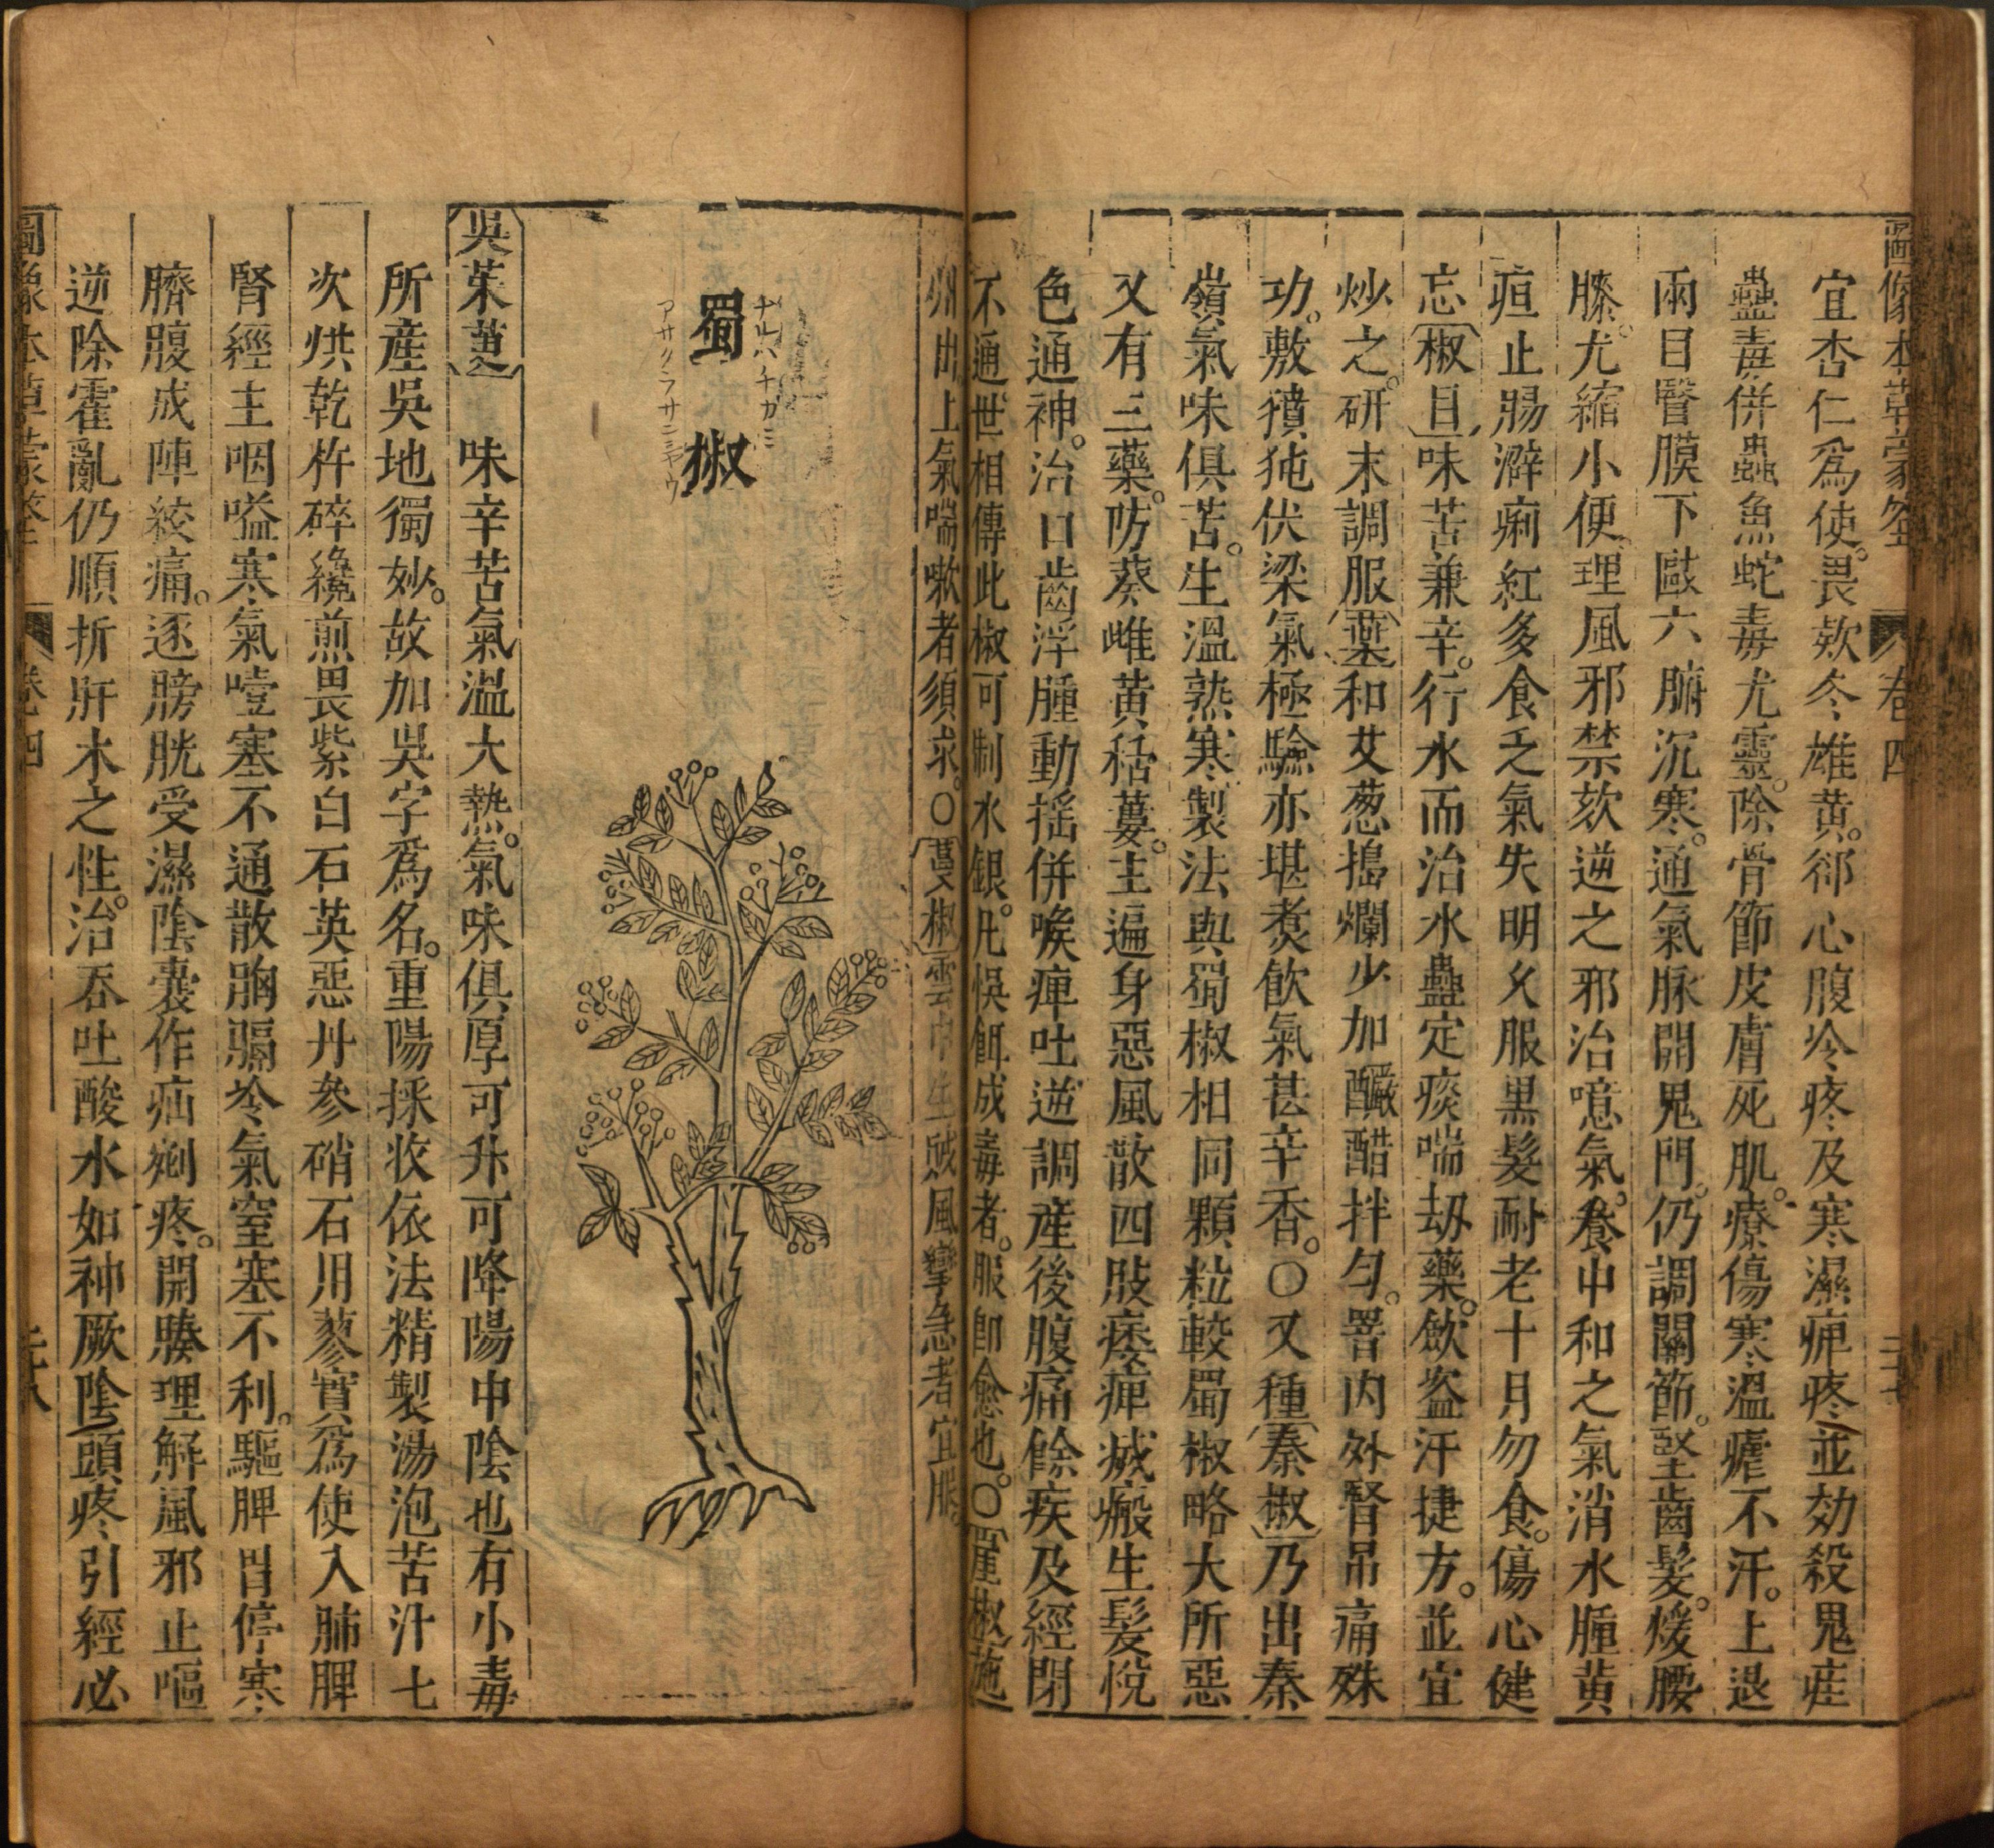 圖像本草蒙筌 卷四
宜杏仁爲使。畏欵冬雄黃。郤心腹冷疼及寒濕痹疼並効殺鬼疰
蠱毒併蟲魚蛇毒尤靈。除骨節皮膚死肌。療傷寒溫瘧不汗。上退
兩目瞖膜下敺六腑沉寒。通氣脉開鬼門。仍調關節。堅齒髮。煖腰
膝。尤縮小便。理風邪禁欬逆之邪治噫氣。養中和之氣消水腫黃
疸止腸澼痢紅多食乏氣失明乆服黑髮耐老十月勿食。傷心健
忘椒目味苦兼辛。行水而治水蠱定痰喘刼藥。飲盗汗捷方。並宜
炒之。研末調服葉和艾葱搗爛少加釅醋拌勻。罯内外腎吊痛殊
功。敷獖㹠伏梁氣極驗亦堪煑飲氣甚辛香。〇又種秦椒乃出秦
嶺氣味俱苦。生溫熟寒製法與蜀椒相同顆粒較蜀椒略大所惡
又有三藥。防葵雌黃栝蔞。主遍身惡風散四肢痿痹滅瘢生髮悅
色通神。治口齒浮腫動揺併喉痺吐逆調産後腹痛餘疾及經閉
不通世相傳此椒可制水銀。凡悞餌成毒者。服卽愈也。〇崖椒施
州出上氣喘嗽者須求。〇蔓椒雲中生 風攣急者宜服。
蜀椒
ナルハチカミ
アサクラサンセウ
吳茱萸 味辛苦氣溫大熱。氣味俱厚可升可降陽中陰也有小毒
所產吳地獨妙。故加吳字爲名。重陽採收依法精製湯泡苦汁七
次烘乾杵碎纔煎畏紫白石英惡丹參硝石用蓼實爲使入肺脾
腎經主咽嗌寒氣噎塞不通散胸膈冷氣窒塞不利。驅脾胃停寒
臍腹成陣絞痛。逐膀胱受濕陰囊作疝㓨疼。開腠理解風邪止嘔
逆除霍亂仍順折肝木之性。治吞吐酸水如神厥陰頭疼引經必
圖像本草蒙筌 卷四